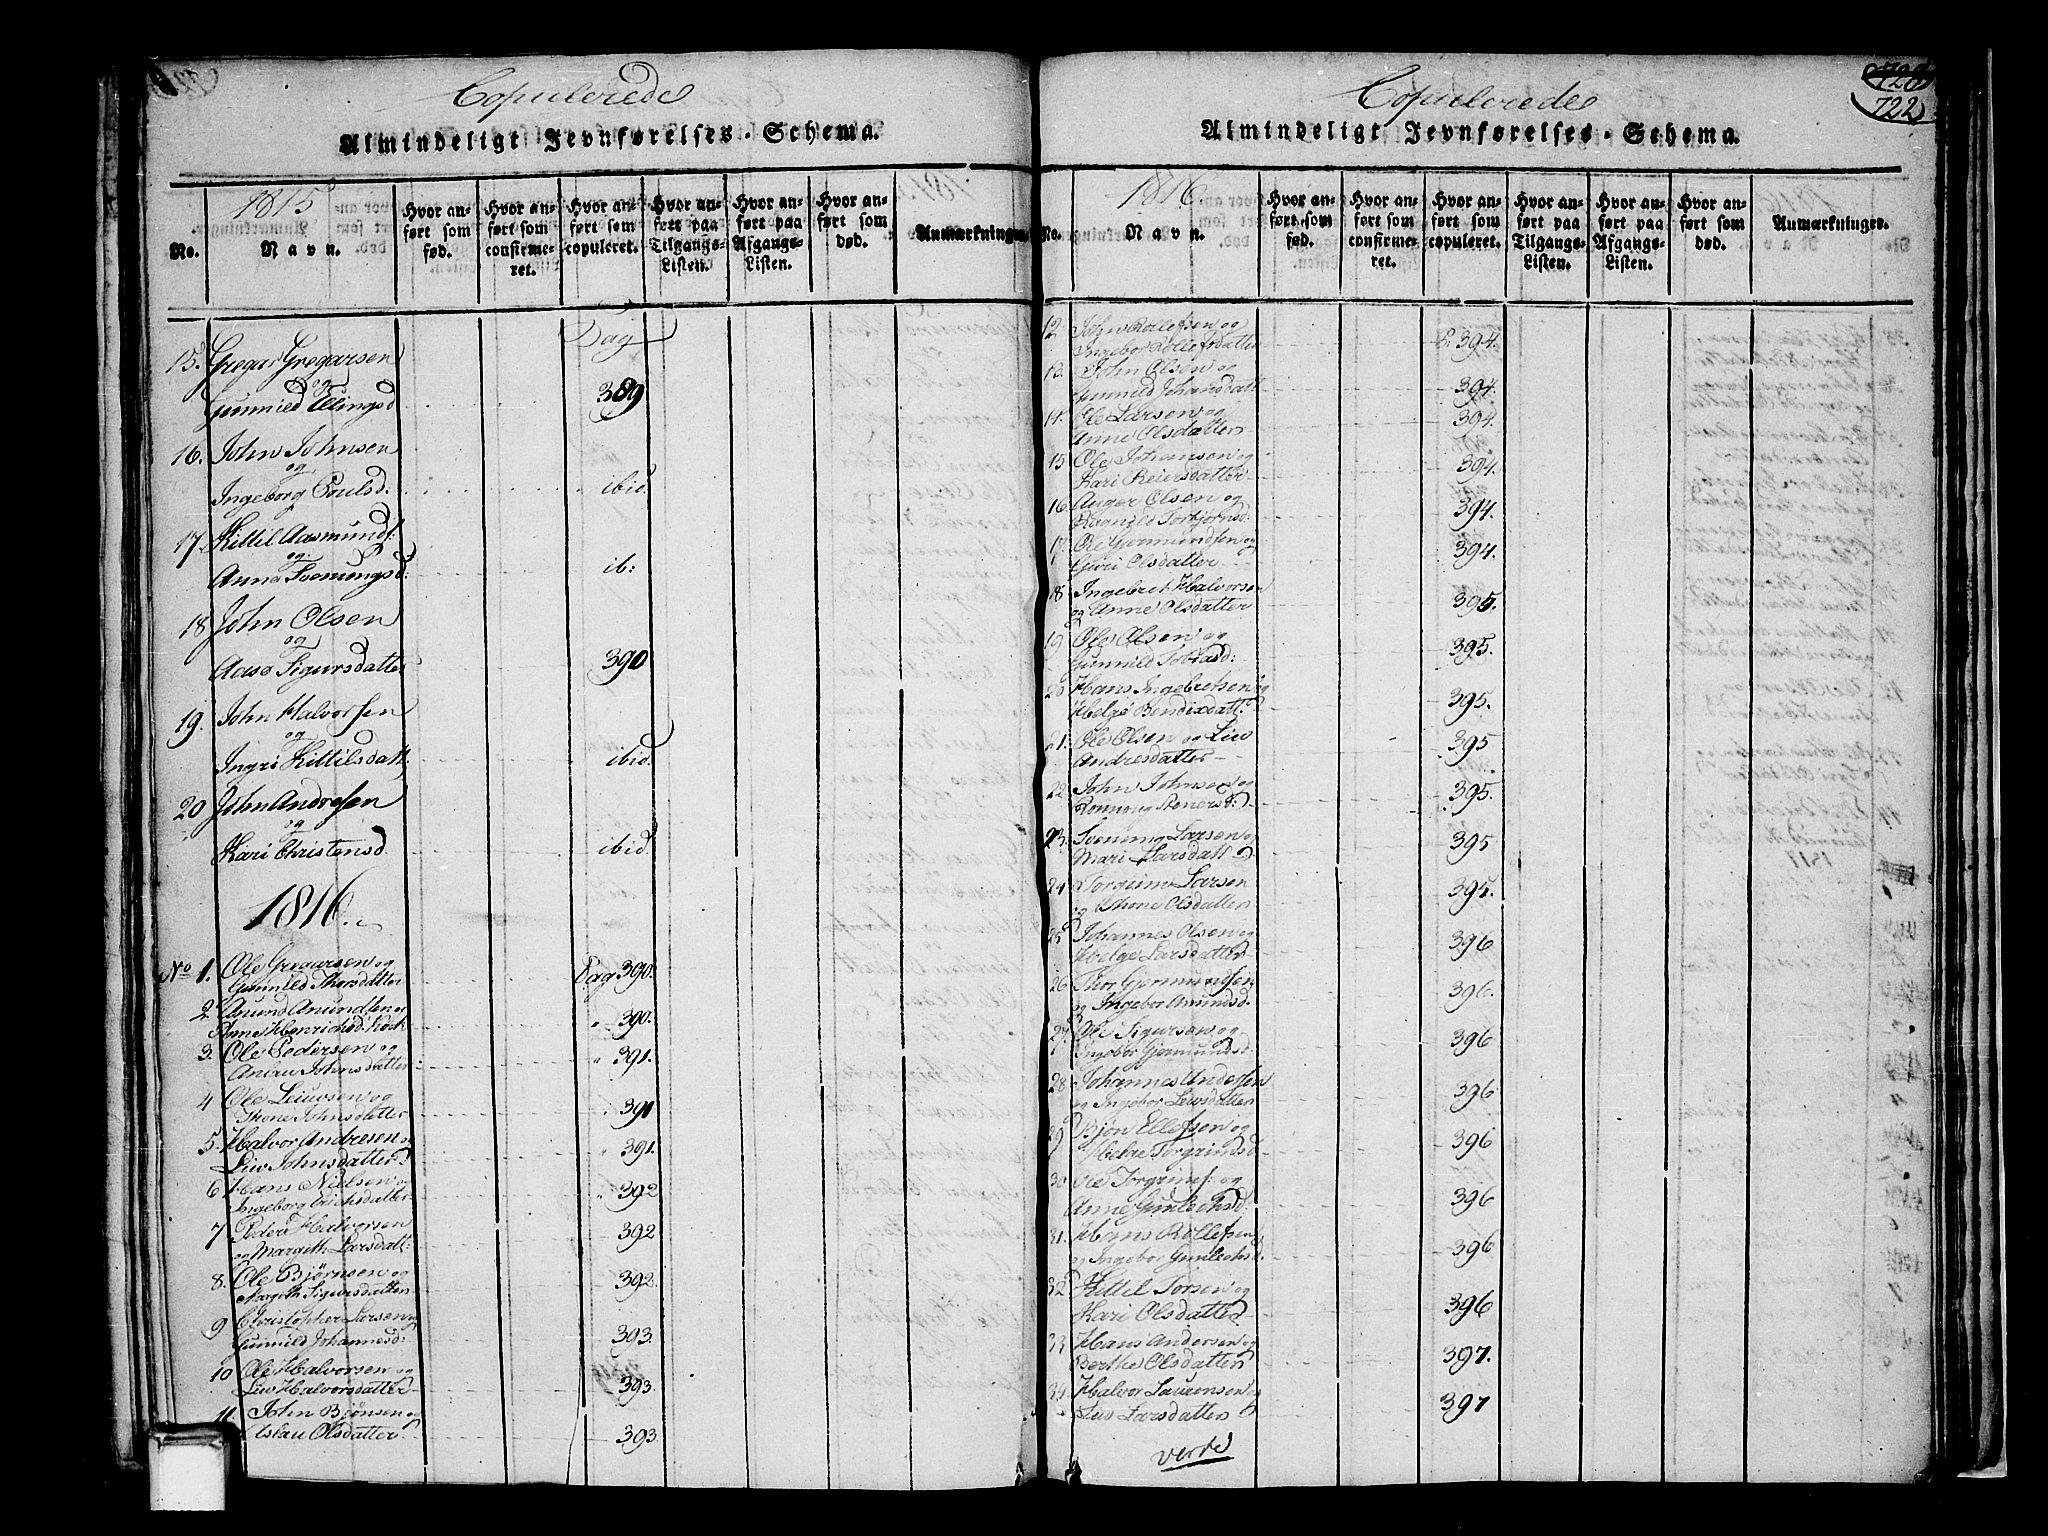 Copulerede
Almindeligt Jevnførelses-Schema.
1815
No.
Navn.
Hvor anført som fød.
Hvor anført som confirmeret.
Hvor anført som copuleret.
Hvor anført paa Tilgangs-Listen.
Hvor anført paa Afgangs-Listen.
Hvor anført som død.
Anmærkninger
Pag
15. Gregar Gregarsen
og
Gunnild Ellingsd 389
16. John Johnsen
og
Ingeborg Poulsd: ibid.
17 Kittil Aasmunds:
og
Anna Svenungsd: ib:
18 John Olsen
og
Aase Sigursdatter 390
19. John Halvorsen
og
Ingri Kittilsdatt ibid.
20 John Andresen
og
Kari Christensd. ibid.
1816.
No 1. Ole Gregarsen og
Gunnild Thorsdatter Pag 390.
2. Amund Amundsen og
Anne Henrichsd: 390.
3. Ole Pedersen og
Andrea Johnsdatter 391.
4 Ole Leiuvsen og
Thone Johnsdatter 391
5. Halvor Andresen og
Liv Johnsdatter 391.
6 Hans Nielsen og
Ingeborg Erichsdatter 392
7 Peder Halvorsen
og Margith Larsdatt: 392
8. Ole Bjørnsen og
Margith Sigursdatter 392.
9 Christopher Larsen og
Gunnild Johannesd: 393.
10 Ole Halvorsen og
Liv Halvorsdatter 393.
11. John Bjønsen og
Aslau Olsdatter 393.
Copulerede
722
Almindeligt Jevnførelses-Schema.
1816.
No.
Navn.
Hvor anført som fød.
Hvor anført som confirmeret.
Hvor anført som copuleret.
Hvor anført paa Tilgangs-Listen.
Hvor anført paa Afgangs-Listen.
Hvor anført som død.
Anmærkninger.
12. John Rollefsen og
Ingebor Rollefsdatter P: 394.
13. John Olsen og
Gunnild Johansdatt 394.
14. Ole Larsen og
Anne Olsdatter 394.
15 Ole Johansen og
Kari Reiersdatter 394.
16 Auger Olsen og
Ragnild Torbjørnsd: 394.
17 Ole Germundsen og
Guri Olsdatter 394.
18 Ingebret Halvorsen
og Anne Olsdatter 395.
19 Ole Olsen og
Gunnild Tobiasd: 395.
20 Hans Ingebretsen og
Helge Bendixdatt: 395.
21. Ole Olsen og Liv
Andresdatter 395
22 John Johnsen og
Ronnoug Stenersd: 395.
23. Svenung Larsen og
Mari Larsdatt 395
24 Torgrim Larsen
og Thone Olsdatter 395.
25 Johannes Olsen og
Helge Larsdatter 396
26 Thor Gjermundsen
og Ingebor Amundsd. 396.
27. Ole Sigursen og
Ingebor Gjermundsd. 396
28 Johannes Andersen
og Ingebor Lewsdatter 396
29 Bjøn Ellefsen og
Helge Torgrimsd 396
30 Ole Torgrims: og
Anne Gunlechsd. 396
31. Hans Rollefsen
og Ingebor Gunlechsd. 396
32 Kittel Torsen og
Kari Olsdatter 396
33 Hans Andersen og
Berthe Olsdatter 397.
34 Halvor Laurensen og
Liv Larsdatter 397
verte